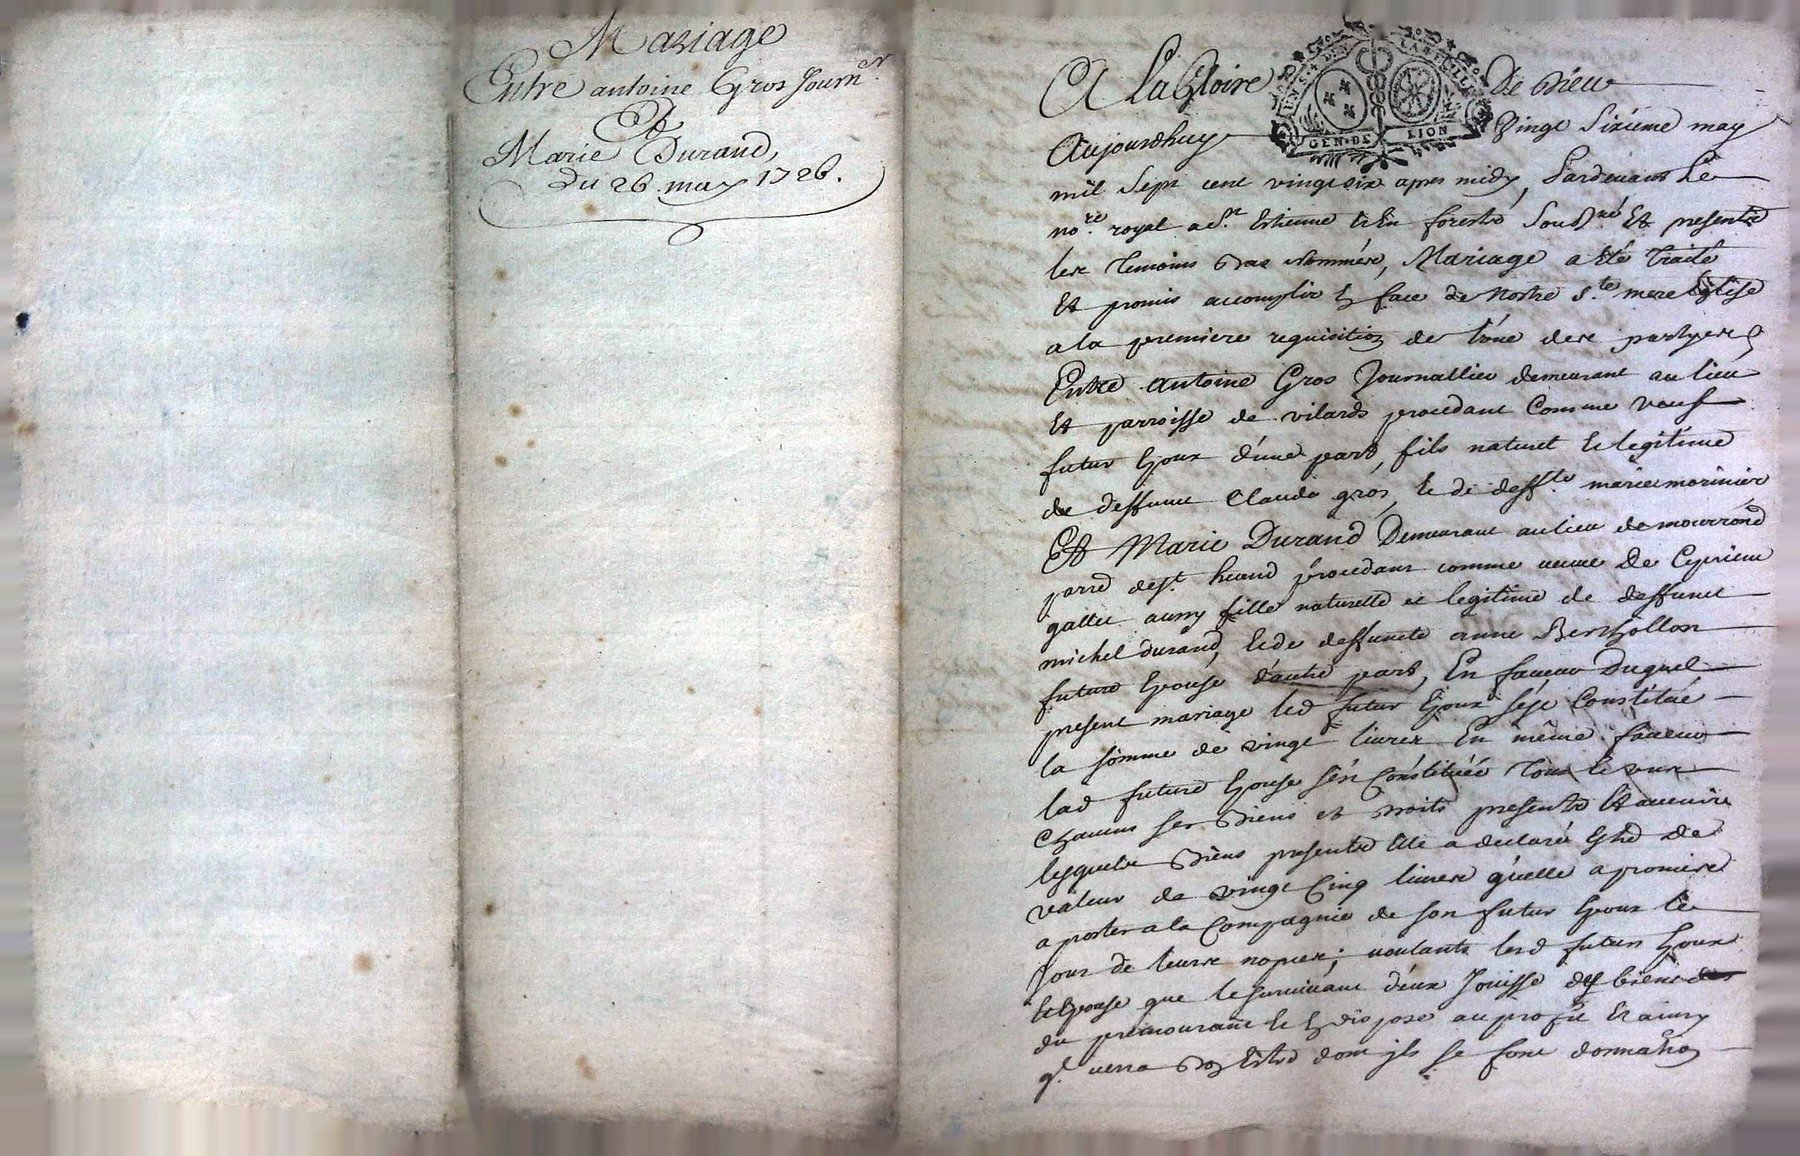 Mariage
Entre antoine Gros Journ.er
Et
Marie Durand,
du 26. may 1726.
A La Gloire de Dieu
UN S. 4 DEN LA FEUILLE
GEN. DE LION
Aujourdhuy Vingt Sixieme may
mil Sept cent vingt six apres midy, Pardevant Le
no.re royal a S.t Estienne en forests Soub.né Et presents
les temoins bas nommés, Mariage a été traité
Et promis accomplir en face de Nostre S.te mere Eglise
a la premiere requisition de l'une des partyes,
Entre antoine Gros Journallier demeurant au lieu
Et parroisse de vilards procedant Comme veuf
futur Epoux d'une part, fils naturel et legitime
de deffunt Claude gros, et de deff.te marie morinier
Et Marie Durand Demeurant au lieu de mourrond
parr.e de S.t heand procedant comme veuve de Cyprien
gallet aussy fille naturelle et legitime de deffunct
michel durand, et de deffuncte anne Berthollon
future Epouse d'autre part, En faveur Duquel
present mariage led futur Epoux s'est Constitué
la somme de vingt livres En même faveur
lad future Epouse s'est Constituée tous et uns
Chacuns ses Biens et Droits presents Et avenirs
lesquels Biens presents Elle a declaré Estre de
valeur de vingt Cinq livres qu'elle a promis
a porter a la Compagnie de son futur Epoux le
Jour de leurs nopces; voulants lesd futurs Epoux
Et Epouse que le survivant d'eux Jouisse des biens
du premourant et En dispose au profit Et ainsy
q.l verra bon Estre dont ils se font donnation